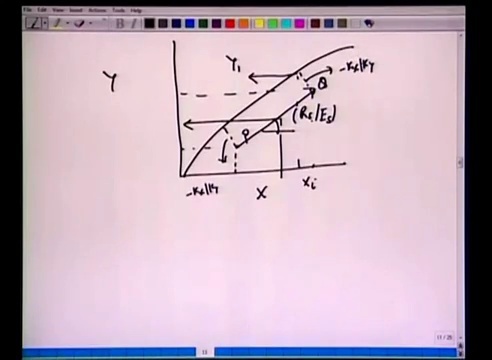 File Edit View Insert Actions Tools Help
Y₁
-Kx/Ky
Y
Q
(Rs/Es)
P
-Kx/Ky
X
Xi
13
11/25